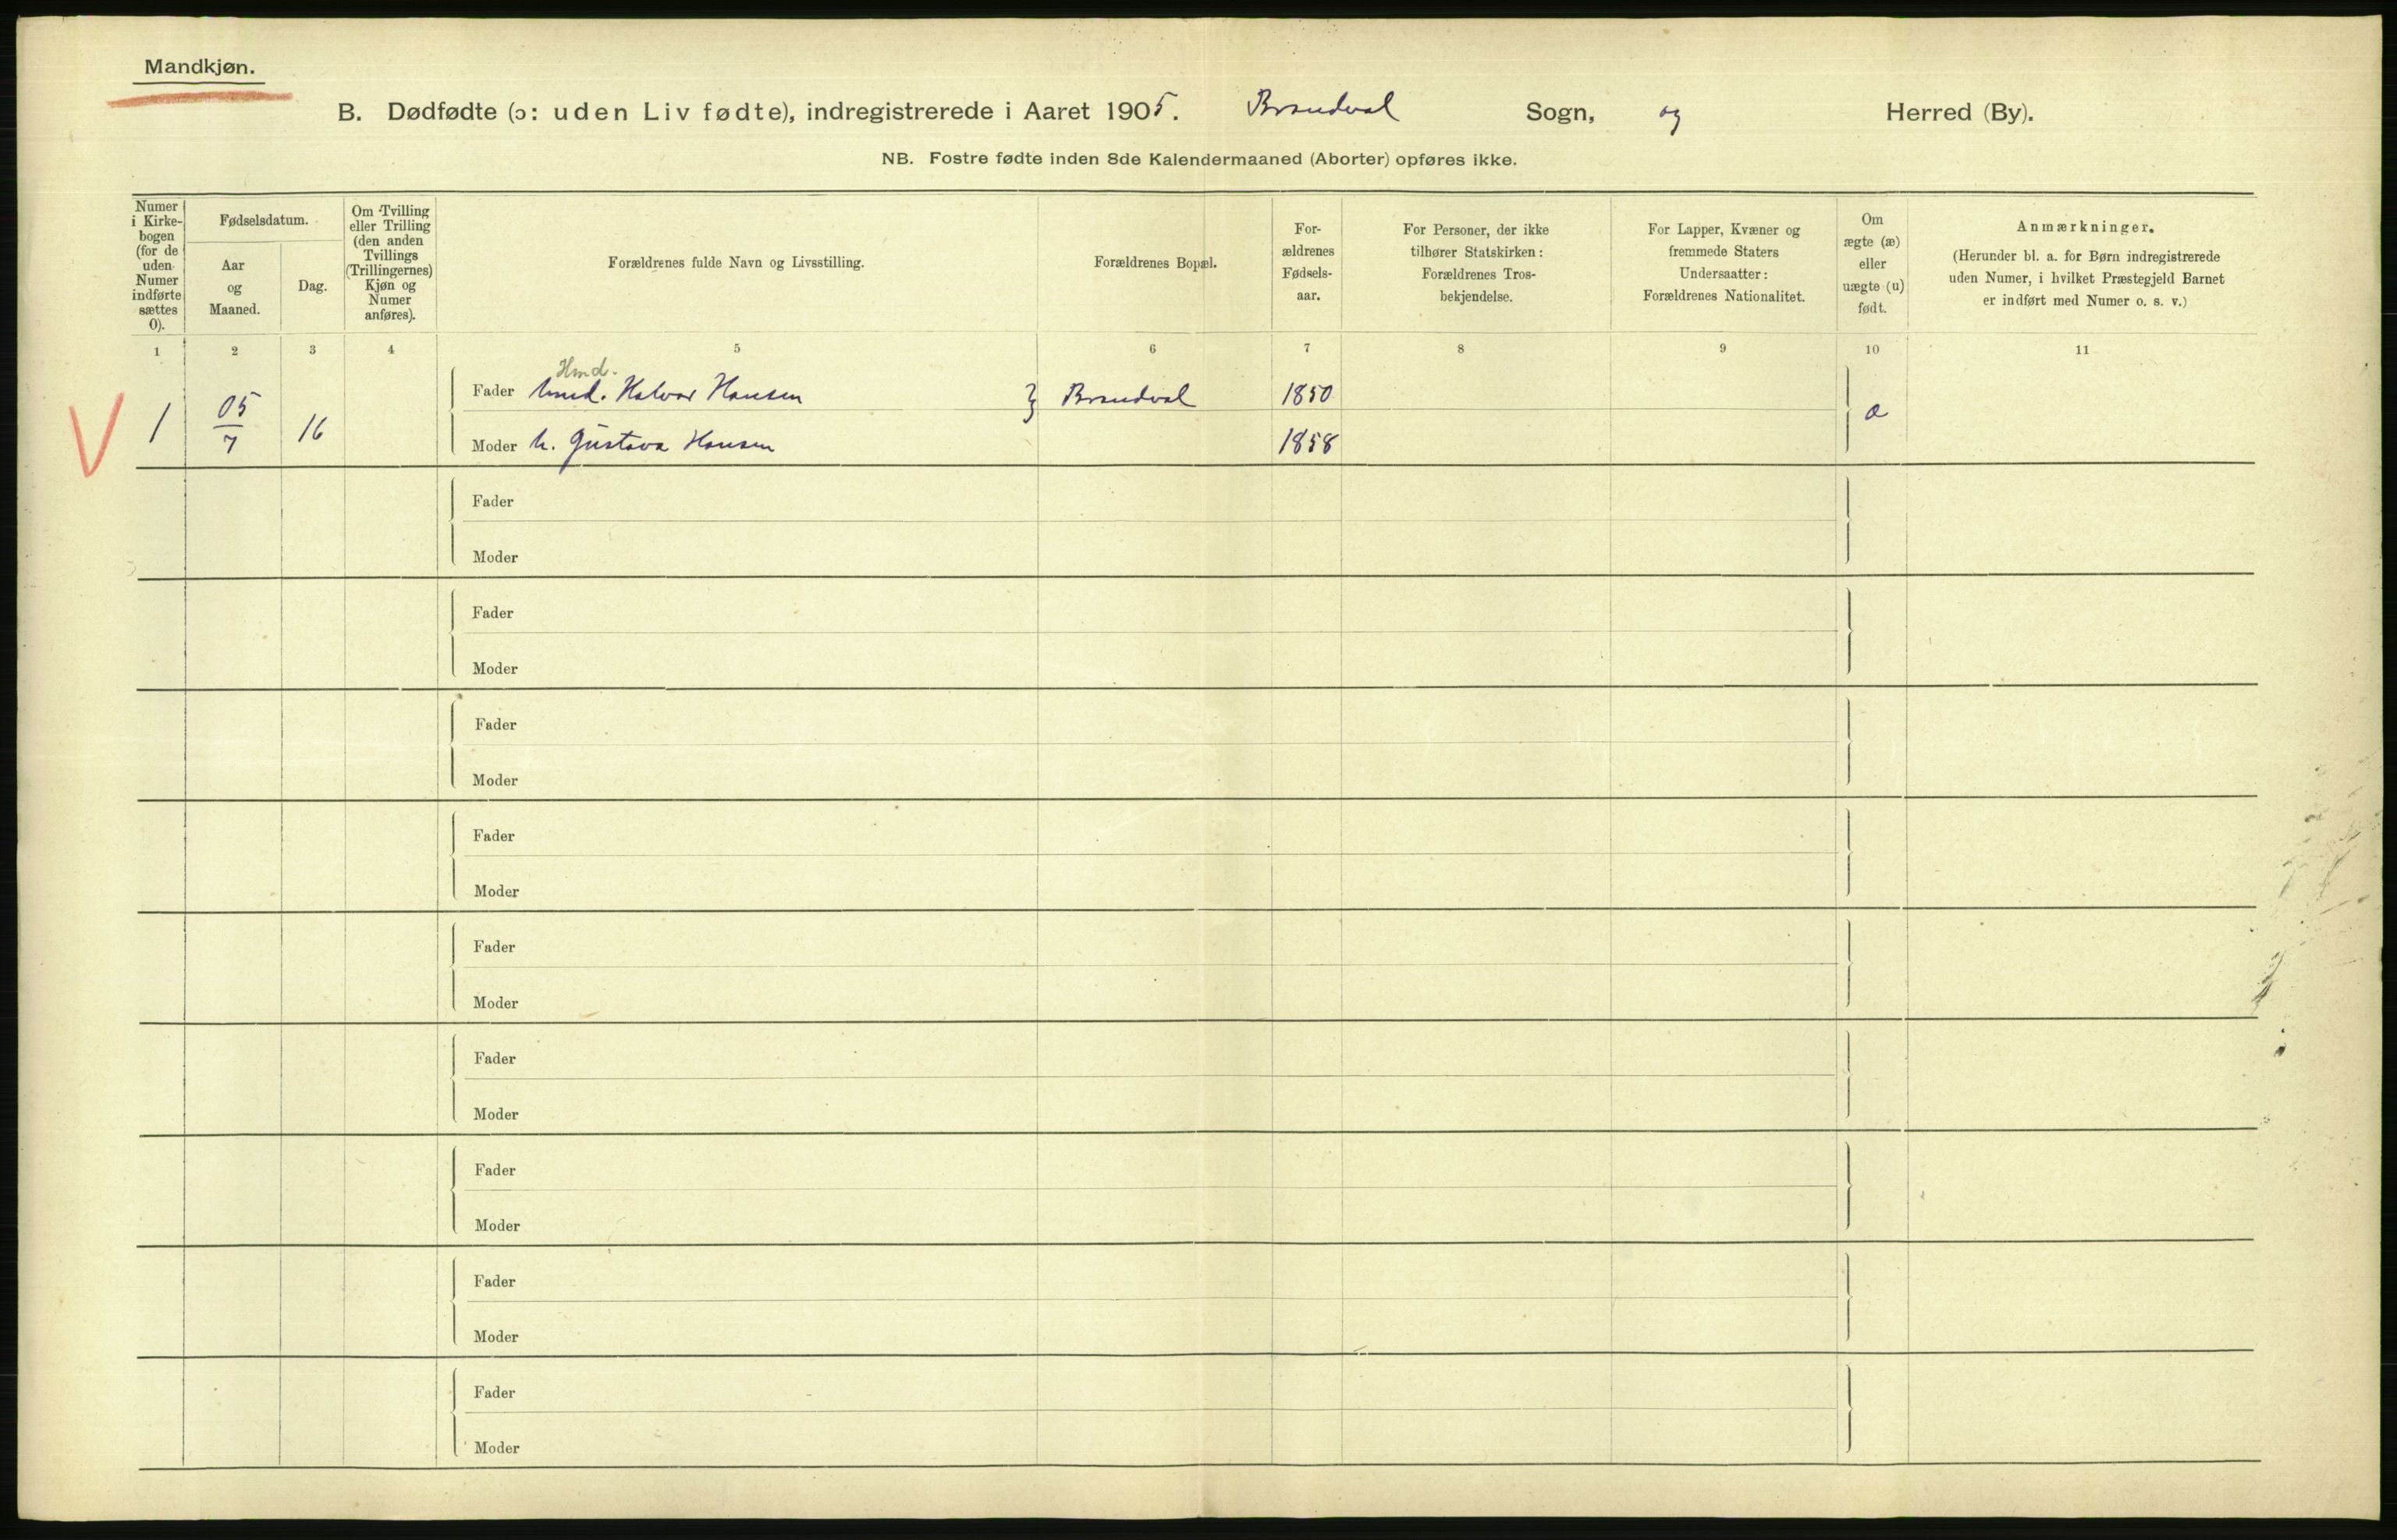 Mandkjøn.
B. Dødfødte (ɔ: uden Liv fødte), indregistrerede i Aaret 1905. Brandval Sogn, og Herred (By).
NB. Fostre fødte inden 8de Kalendermaaned (Aborter) opføres ikke.
Numer i Kirke-bogen (for de uden Numer indførte sættes 0).
Fødselsdatum.
Aar og Maaned.
Dag.
Om Tvilling eller Trilling (den anden Tvillings (Trillingernes) Kjøn og Numer anføres).
Forældrenes fulde Navn og Livsstilling.
Forældrenes Bopæl.
For-ældrenes Fødsels-aar.
For Personer, der ikke tilhører Statskirken: Forældrenes Tros-bekjendelse.
For Lapper, Kvæner og fremmede Staters Undersaatter: Forældrenes Nationalitet.
Om ægte (æ) eller uægte (u) født.
Anmærkninger.
(Herunder bl. a. for Børn indregistrerede uden Numer, i hvilket Præstegjeld Barnet er indført med Numer o. s. v.)
1 2 3 4 5 6 7 8 9 10 11
Hmd.
V 1 05/7 16 Fader Halvor Hansen Brandval 1850
Moder h. Gustava Hansen 1858
Fader
Moder
Fader
Moder
Fader
Moder
Fader
Moder
Fader
Moder
Fader
Moder
Fader
Moder
Fader
Moder
Fader
Moder